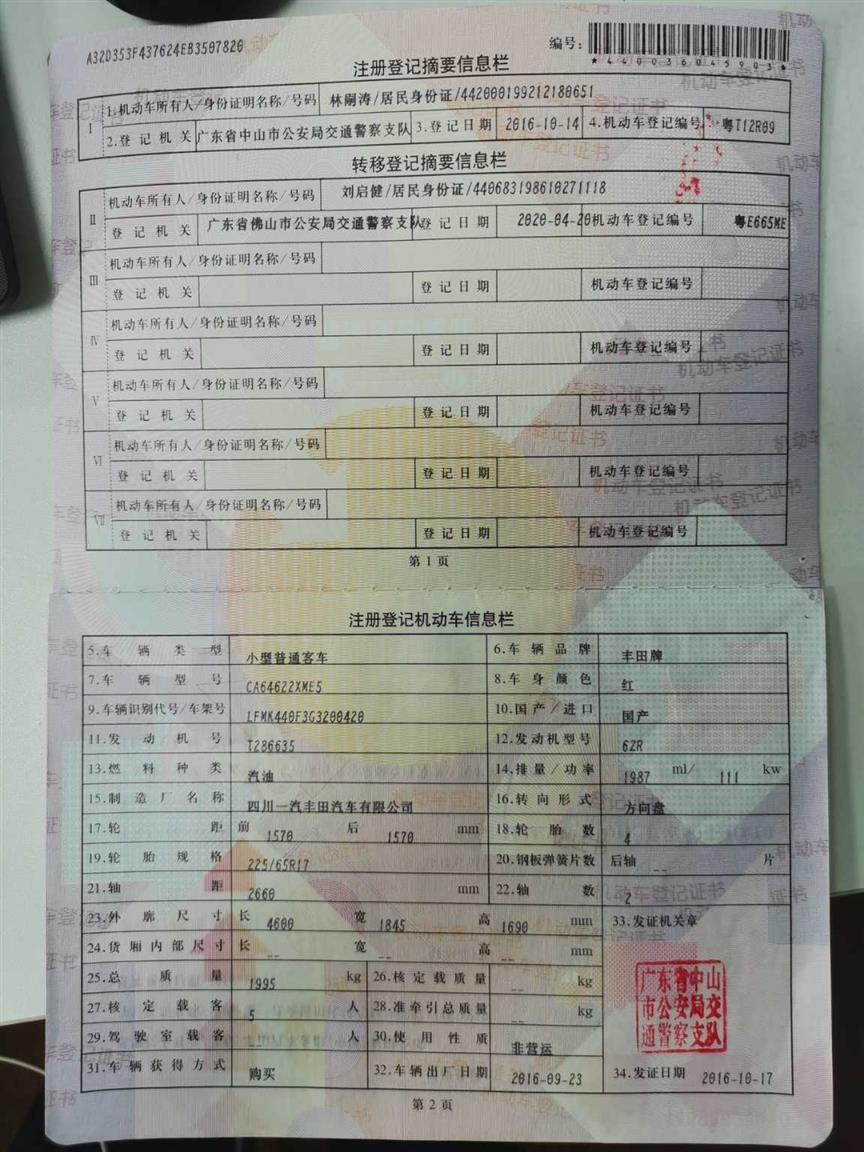 A32D353F437624EB3507820
编号:
*440036045903*
注册登记摘要信息栏
Ⅰ 1.机动车所有人/身份证明名称/号码 林嗣涛/居民身份证/442000199212180651
2.登记机关 广东省中山市公安局交通警察支队 3.登记日期 2016-10-14 4.机动车登记编号 粤T12R09
转移登记摘要信息栏
Ⅱ 机动车所有人/身份证明名称/号码 刘启健/居民身份证/440683198610271118
登记机关 广东省佛山市公安局交通警察支队 登记日期 2020-04-20 机动车登记编号 粤E665ME
Ⅲ 机动车所有人/身份证明名称/号码
登记机关 登记日期 机动车登记编号
Ⅳ 机动车所有人/身份证明名称/号码
登记机关 登记日期 机动车登记编号
Ⅴ 机动车所有人/身份证明名称/号码
登记机关 登记日期 机动车登记编号
Ⅵ 机动车所有人/身份证明名称/号码
登记机关 登记日期 机动车登记编号
Ⅶ 机动车所有人/身份证明名称/号码
登记机关 登记日期 机动车登记编号
第1页
注册登记机动车信息栏
5.车辆类型 小型普通客车 6.车辆品牌 丰田牌
7.车辆型号 CA64622XME5 8.车身颜色 红
9.车辆识别代号/车架号 LFMK440F3G3200420 10.国产/进口 国产
11.发动机号 T286635 12.发动机型号 6ZR
13.燃料种类 汽油 14.排量/功率 1987 ml/ 111 kw
15.制造厂名称 四川一汽丰田汽车有限公司 16.转向形式 方向盘
17.轮距 前 1570 后 1570 mm 18.轮胎数 4
19.轮胎规格 225/65R17 20.钢板弹簧片数 后轴 -- 片
21.轴距 2660 mm 22.轴数 2
23.外廓尺寸 长 4600 宽 1845 高 1690 mm 33.发证机关章
24.货厢内部尺寸 长 -- 宽 -- 高 -- mm
25.总质量 1995 kg 26.核定载质量 -- kg
27.核定载客 5 人 28.准牵引总质量 -- kg
29.驾驶室载客 -- 人 30.使用性质 非营运
广东省中山
市公安局交
通警察支队
31.车辆获得方式 购买 32.车辆出厂日期 2016-09-23 34.发证日期 2016-10-17
第2页